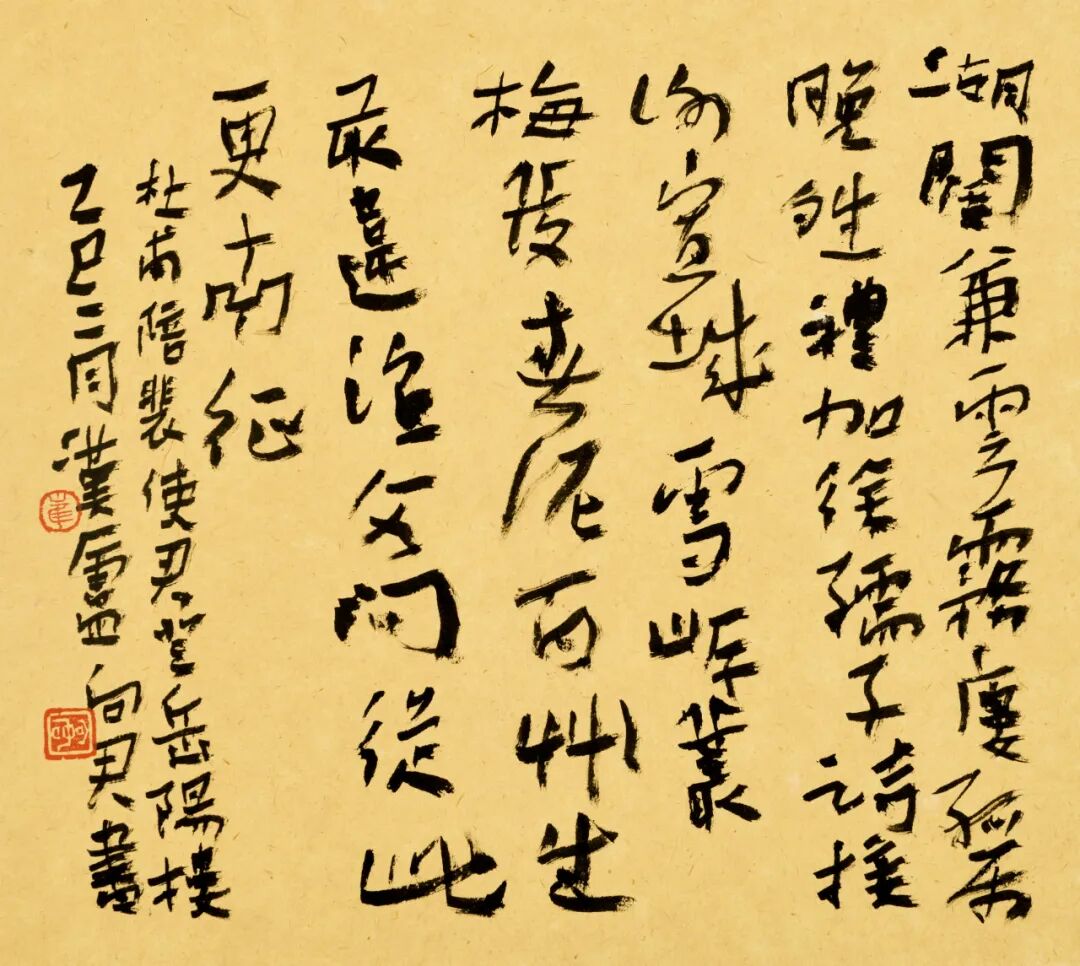 湖闊兼雲霧廔孤属
晚夝禮加徐孺子詩接
謝宣城雪岸叢
梅發春泥百艸生
敢違漁父問從此
更南征
杜甫陪裴使君登岳陽樓
乙巳二月漢廬向尹書